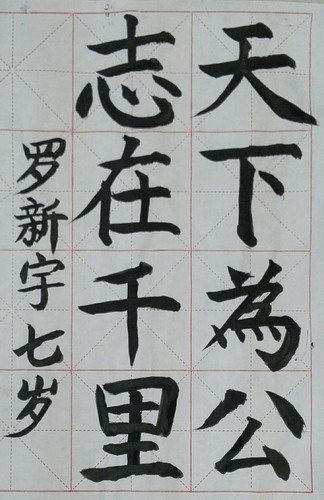 天下為公
志在千里
罗新宇七岁